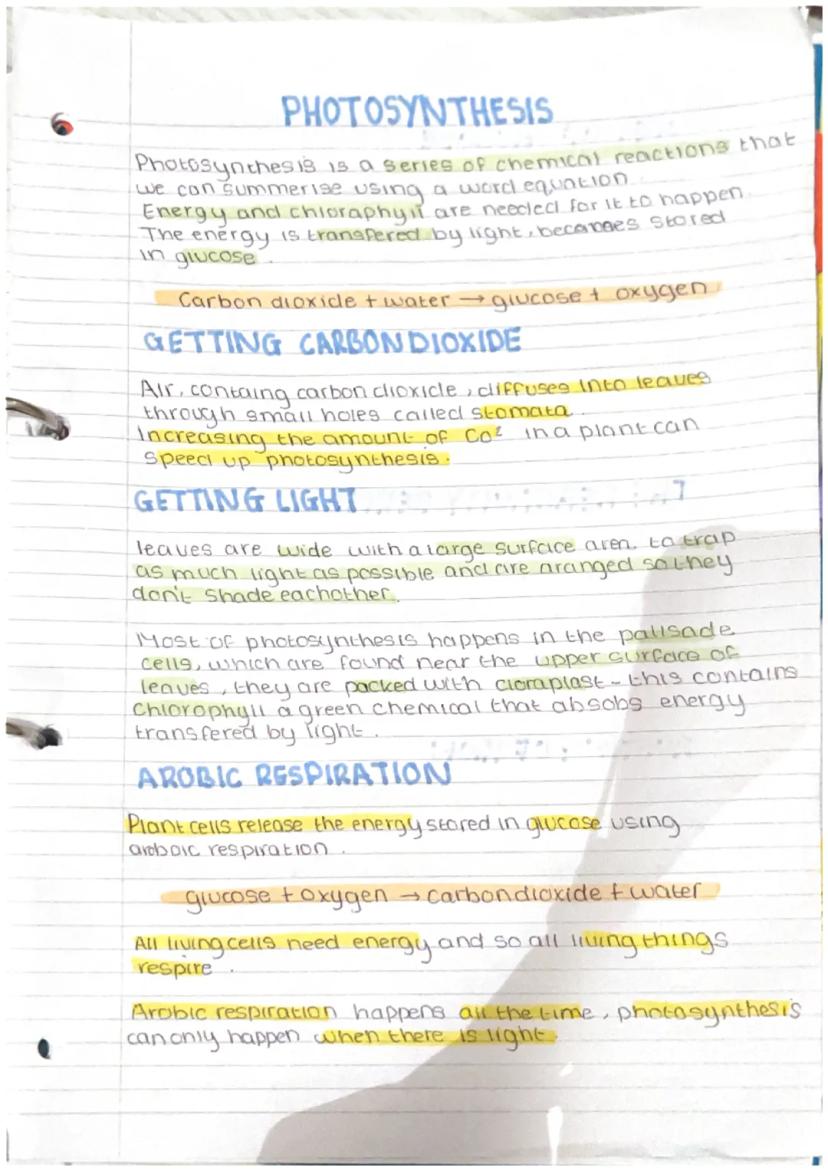 PHOTOSYNTHESIS
Photosynthesis is a series of chemical reactions that
we can summerise using a word equation.
Energy and chloraphyll are needed for it to happen.
The energy is transfered by light, becomes stored
in glucose.
Carbon dioxide + water → glucose + oxygen
GETTING CARBONDIOXIDE
Air, containg carbon dioxide, diffuses into leaves
through small holes called stomata.
Increasing the amount of Co² in a plant can
speed up photosynthesis.
GETTING LIGHT
leaves are wide with a large surface area to trap
as much light as possible and are aranged so they
don't shade eachother.
Most of photosynthesis happens in the palisade
cells, which are found near the upper surface of
leaves, they are packed with cloraplast - this contains
Chlorophyll a green chemical that absobs energy
transfered by light.
AROBIC RESPIRATION
Plant cells release the energy stored in glucose using
aroboic respiration.
glucose + oxygen → carbondioxide + water
All living cells need energy and so all living things
respire.
Arobic respiration happens all the time, photosynthesis
can only happen when there is light.